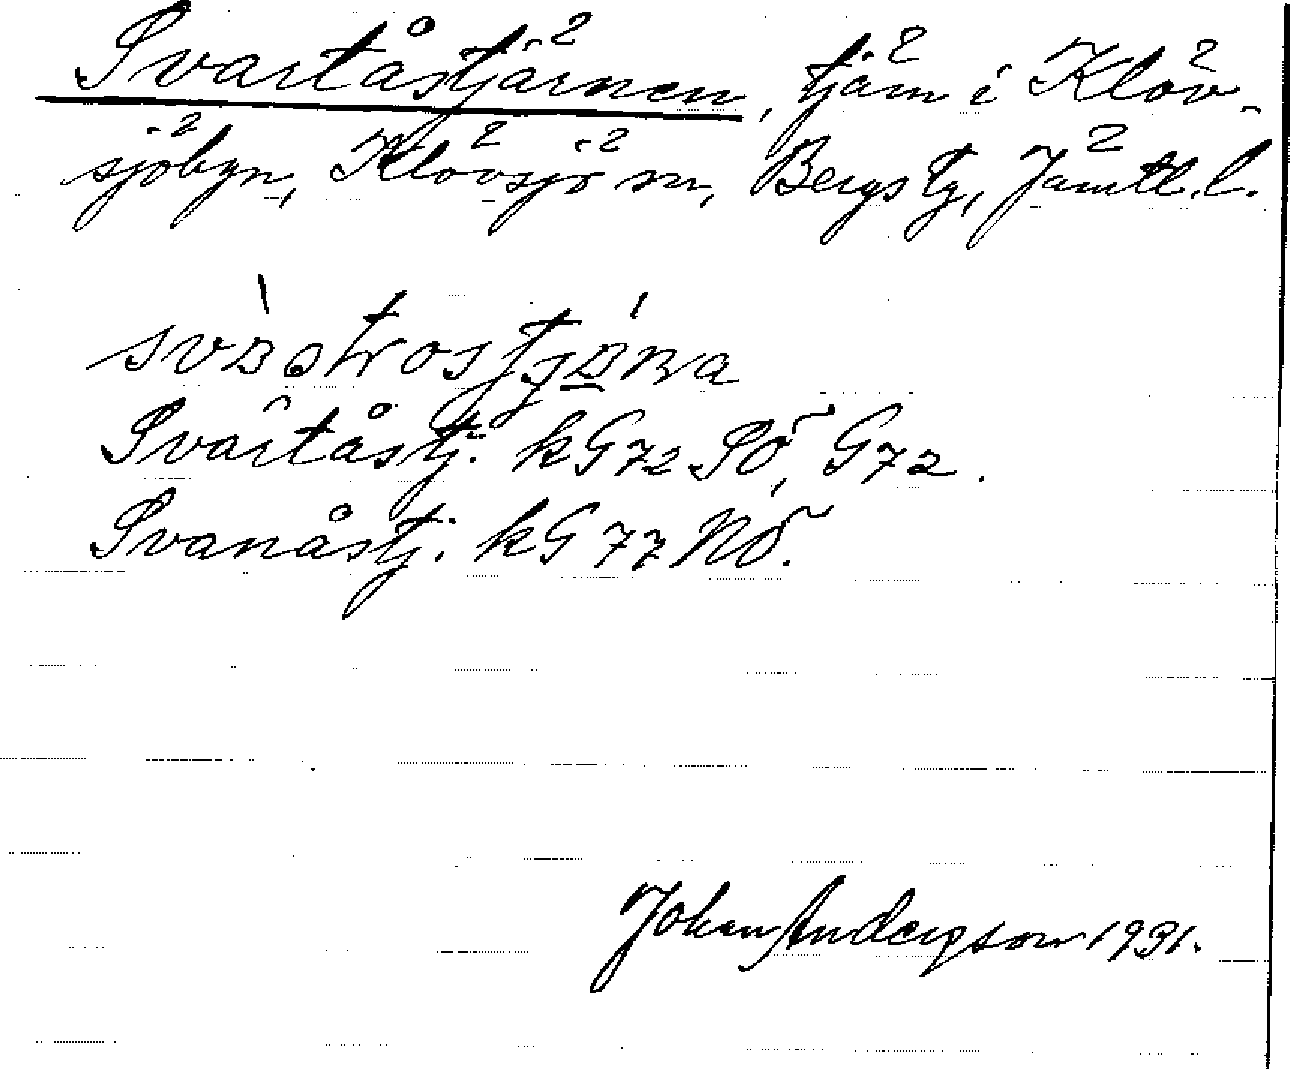 Svartåstjärnen, tjärn i Klöv-
sjöbyn, Klövsjö sn, Bergs tg, Jämtl. l.
Svartåstj. kG72 SÖ, G72.
Svanåstj. kG77 NÖ.
Johan Anderson 1931.